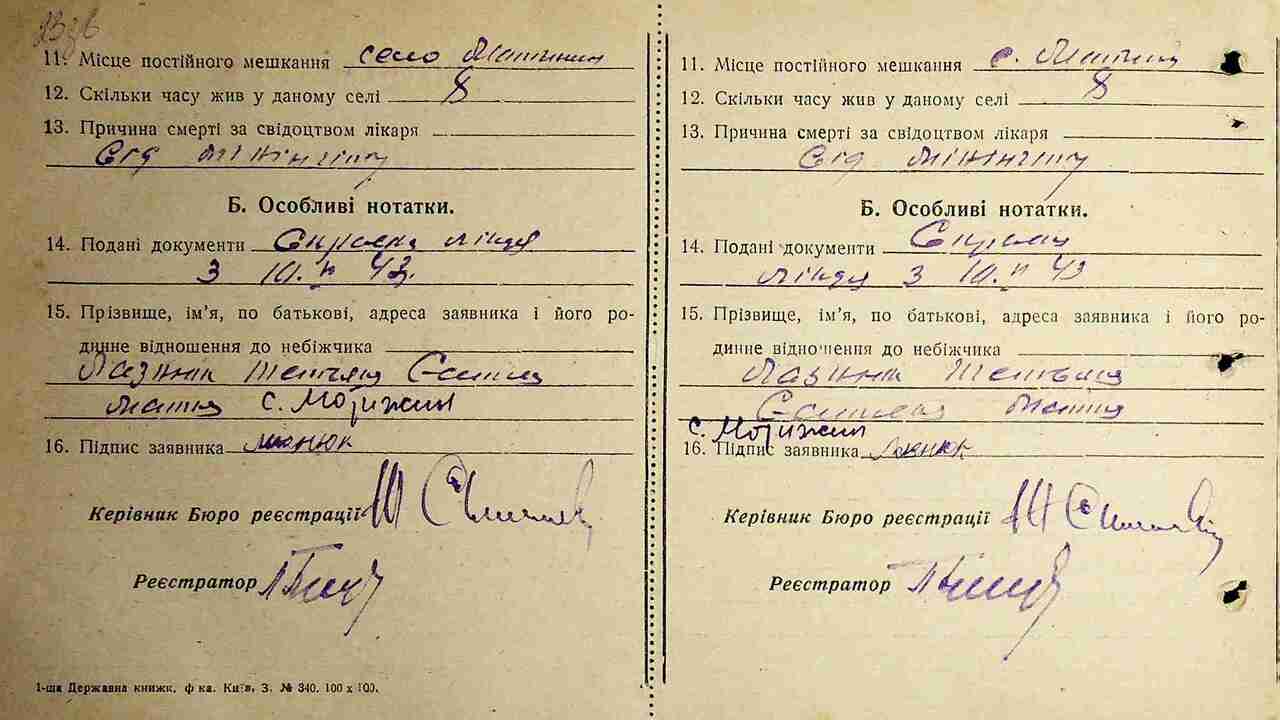 11. Місце постійного мешкання село
12. Скільки часу жив у даному селі 8
13. Причина смерті за свідоцтвом лікаря
Від менінгіту
Б. Особливі нотатки.
14. Подані документи Справка лікаря
з 10.II 43
15. Прізвище, ім'я, по батькові, адреса заявника і його ро-
динне відношення до небіжчика
Тетяна
мати с. Мотижин
16. Підпис заявника
Керівник Бюро реєстрації
Реєстратор
1-ша Державна книжк. ф-ка. Київ, З. № 340. 100 x 100.
11. Місце постійного мешкання с.
12. Скільки часу жив у даному селі 8
13. Причина смерті за свідоцтвом лікаря
Від менінгіту
Б. Особливі нотатки.
14. Подані документи Справка
лікаря з 10.II 43
15. Прізвище, ім'я, по батькові, адреса заявника і його ро-
динне відношення до небіжчика
Тетяна
мати
с. Мотижин
16. Підпис заявника
Керівник Бюро реєстрації
Реєстратор